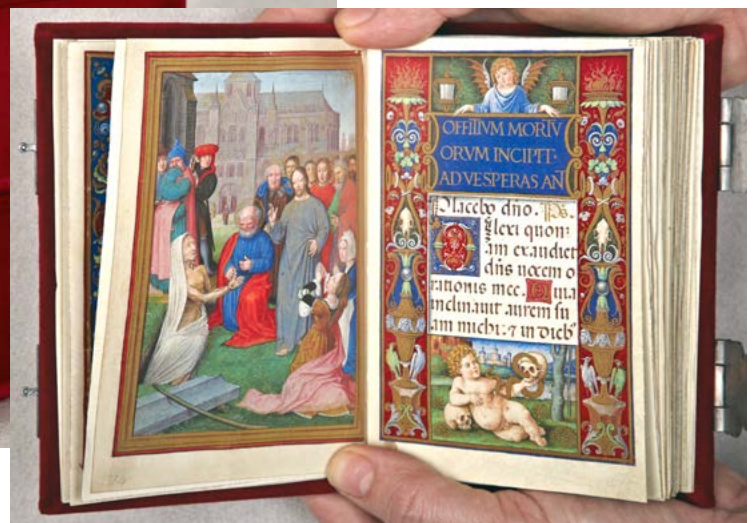 OFFITIVM MORTV
ORVM INCIPIT·
AD VESPERAS AN̄
Placebo dño. Ps.
Dilexi quon:
iam exaudiet
dñs vocem o
rationis mee. Quia
inclinauit aurem su
am michi: ⁊ in dieb⁹